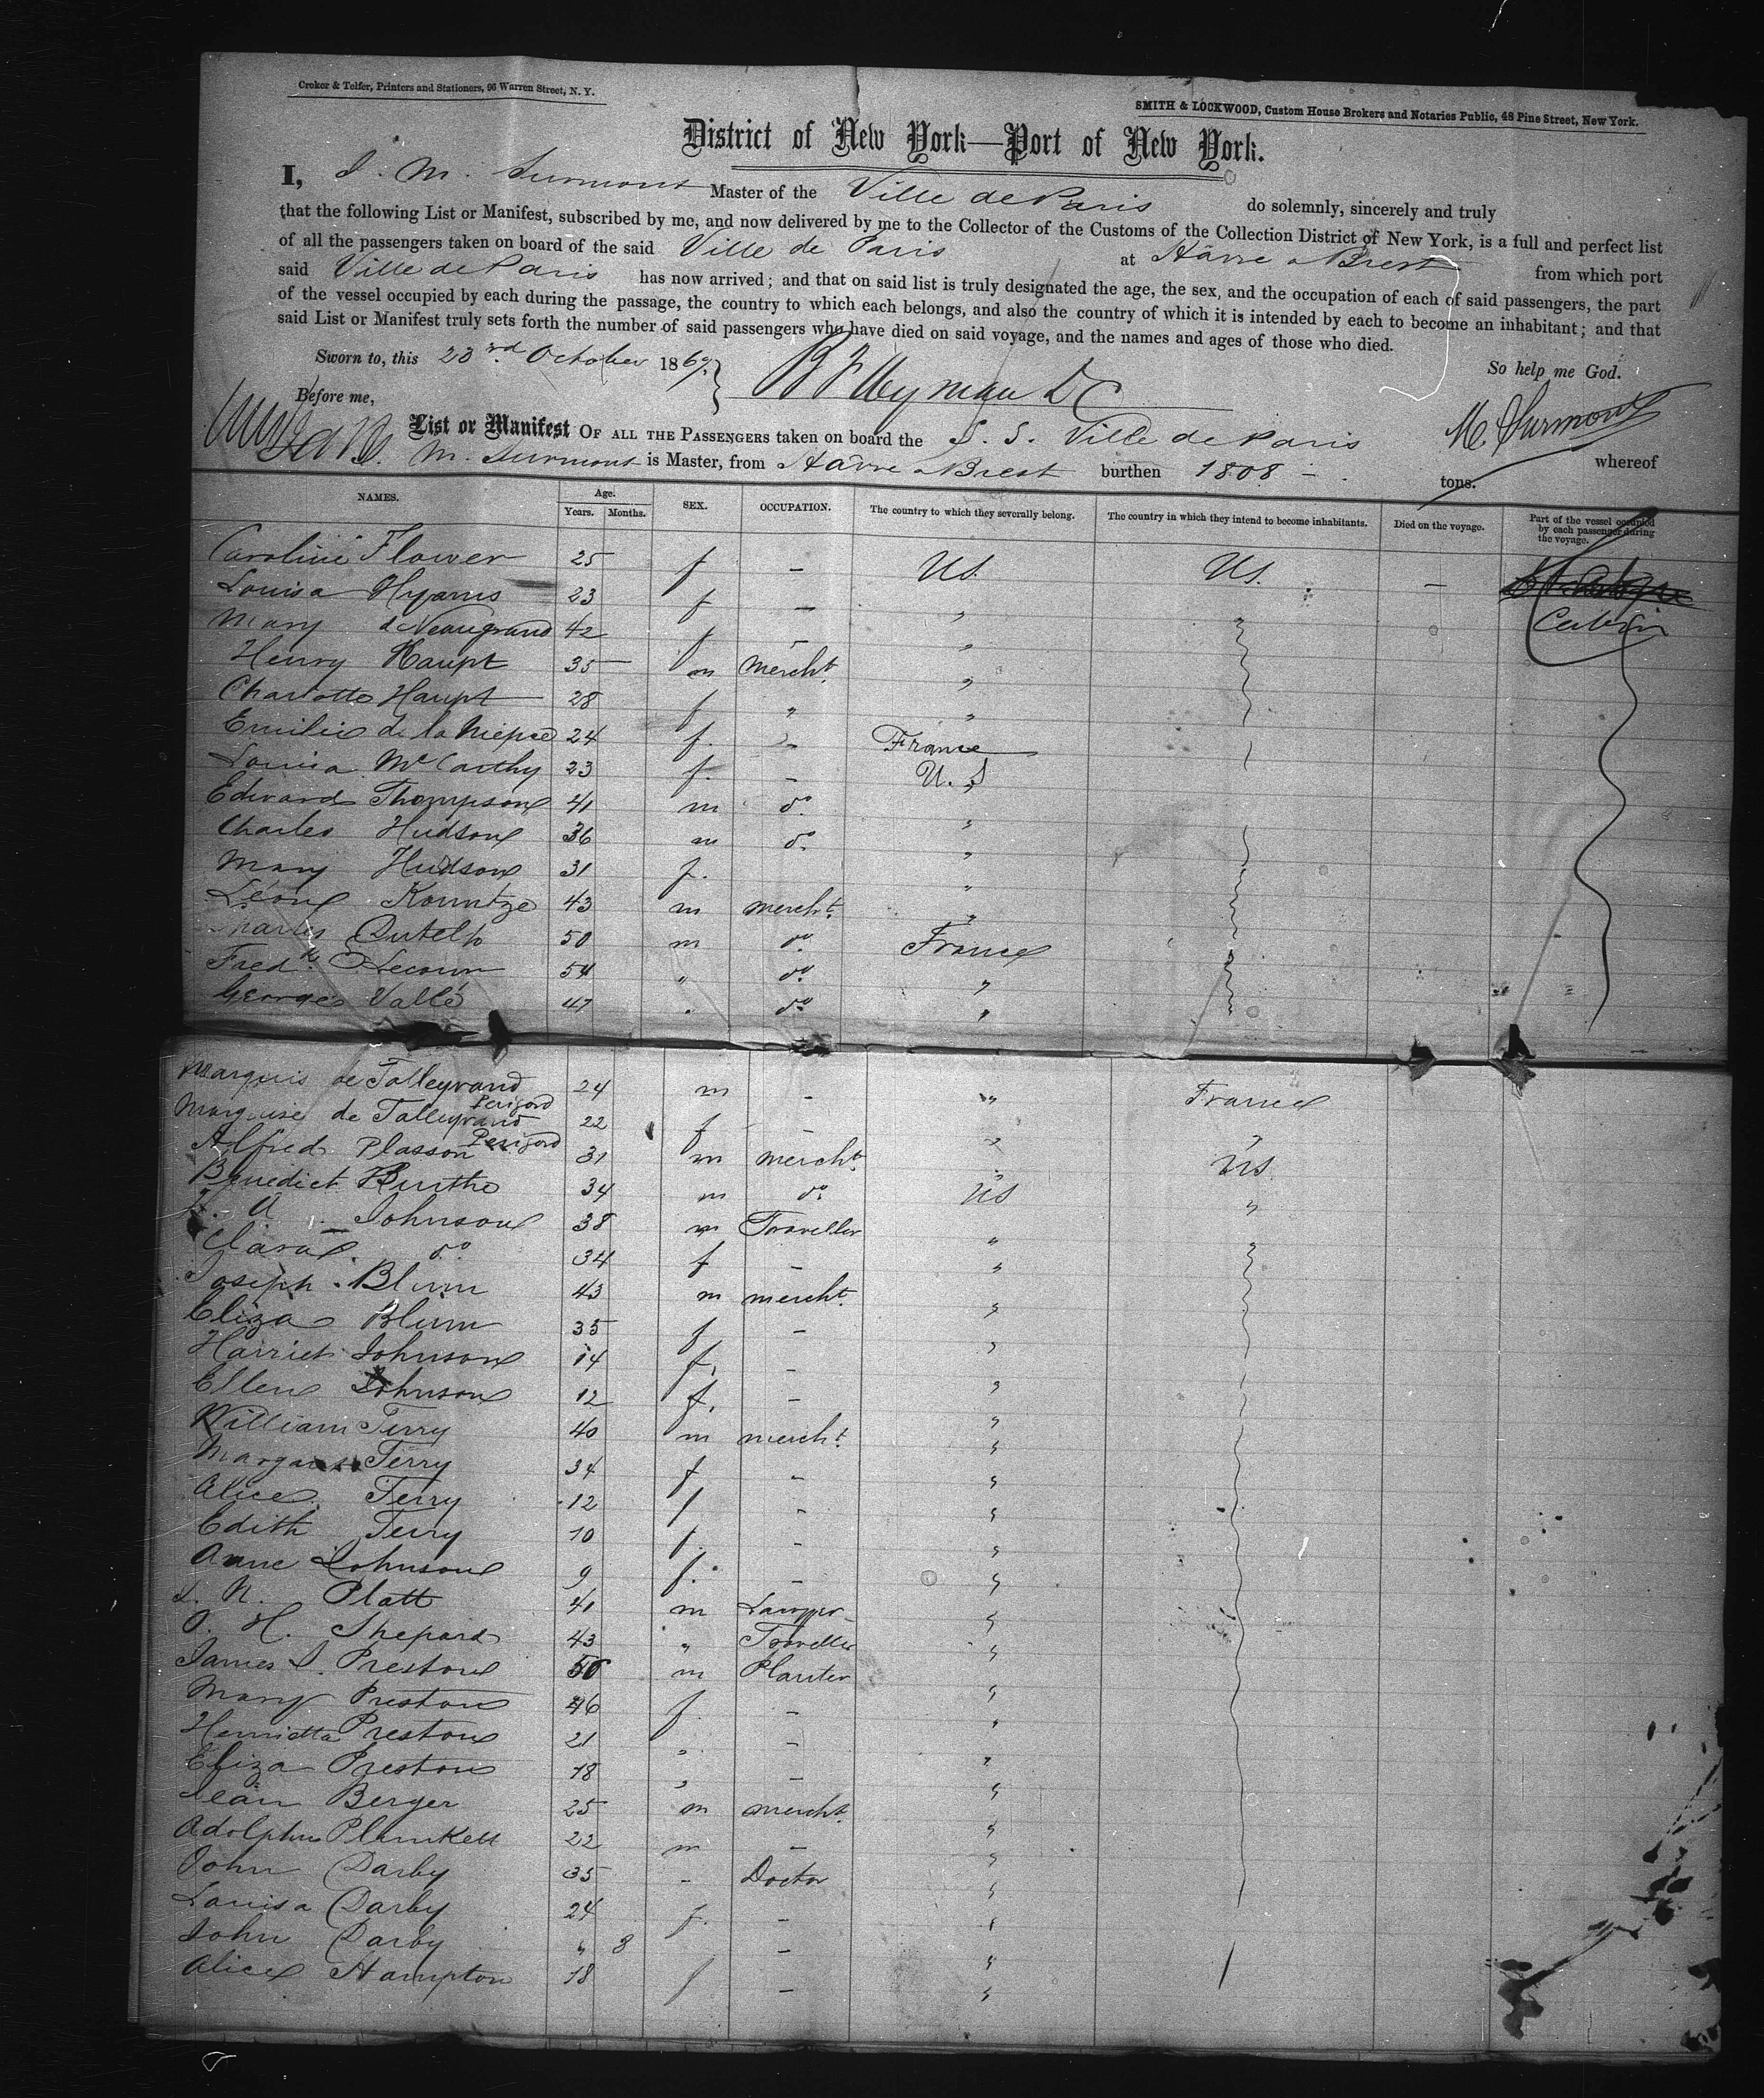 Croker & Telfer, Printers and Stationers, 96 Warren Street, N. Y.
SMITH & LOCKWOOD, Custom House Brokers and Notaries Public, 48 Pine Street, New York.
District of New York—Port of New York.
I, J. M. Surmont Master of the Ville de Paris do solemnly, sincerely and truly
that the following List or Manifest, subscribed by me, and now delivered by me to the Collector of the Customs of the Collection District of New York, is a full and perfect list
of all the passengers taken on board of the said Ville de Paris at Havre & Brest from which port
said Ville de Paris has now arrived; and that on said list is truly designated the age, the sex, and the occupation of each of said passengers, the part
of the vessel occupied by each during the passage, the country to which each belongs, and also the country of which it is intended by each to become an inhabitant; and that
said List or Manifest truly sets forth the number of said passengers who have died on said voyage, and the names and ages of those who died.
Sworn to, this 23rd October 1867. So help me God.
Before me, Wyman DC
M. Surmont
List or Manifest OF ALL THE PASSENGERS taken on board the S. S. Ville de Paris whereof
M. Surmont is Master, from Havre & Brest burthen 1808 - tons.
NAMES. Age. Years. Months. SEX. OCCUPATION. The country to which they severally belong. The country in which they intend to become inhabitants. Died on the voyage. Part of the vessel occupied by each passenger during the voyage.
Caroline Flower 25 f - US. US. -
Louisa Hyams 23 f - " " Cabin
Mary d Neaugrand 42 f - "
Henry Haupt 35 m mercht. "
Charlotte Haupt 28 f " "
Emilie de la Niepce 24 f. " France
Louisa McCarthy 23 f. - U. S
Edward Thompson 41 m do. "
Charles Hudson 36 m do. "
Mary Hudson 31 f. "
Léon Kountze 43 m mercht. "
Charles Dutelh 50 m do. France
Fredk. Lecoun 54 " do. "
George Vallé 47 " do. "
Marquis de Talleyrand Perigord 24 m - " France
Marquise de Talleyrand Perigord 22 f - " "
Alfred Plasson 31 m mercht. " US.
Benedict Burthe 34 m do. US "
A. Johnson 38 m Traveller "
Clara do. 34 f - "
Joseph Blum 43 m mercht. "
Eliza Blum 35 f - "
Harriet Johnson 14 f. - "
Ellen Johnson 12 f. - "
William Terry 40 m mercht. "
Margaret Terry 34 f - "
Alice Terry 12 f - "
Edith Terry 10 f. - "
Anne Johnson 9 f. - "
Platt 41 m Lawyer "
O. H. Shepard 43 " Traveller "
James S. Preston 50 m Planter "
Mary Preston 46 f. - "
Henrietta Preston 21 " - "
Eliza Preston 18 " - "
Jean Berger 25 m mercht. "
Adolphus Plunkett 22 m - "
John Darby 35 - Doctor "
Louisa Darby 24 f. - "
John Darby " 8 - "
Alice Hampton 18 f - "